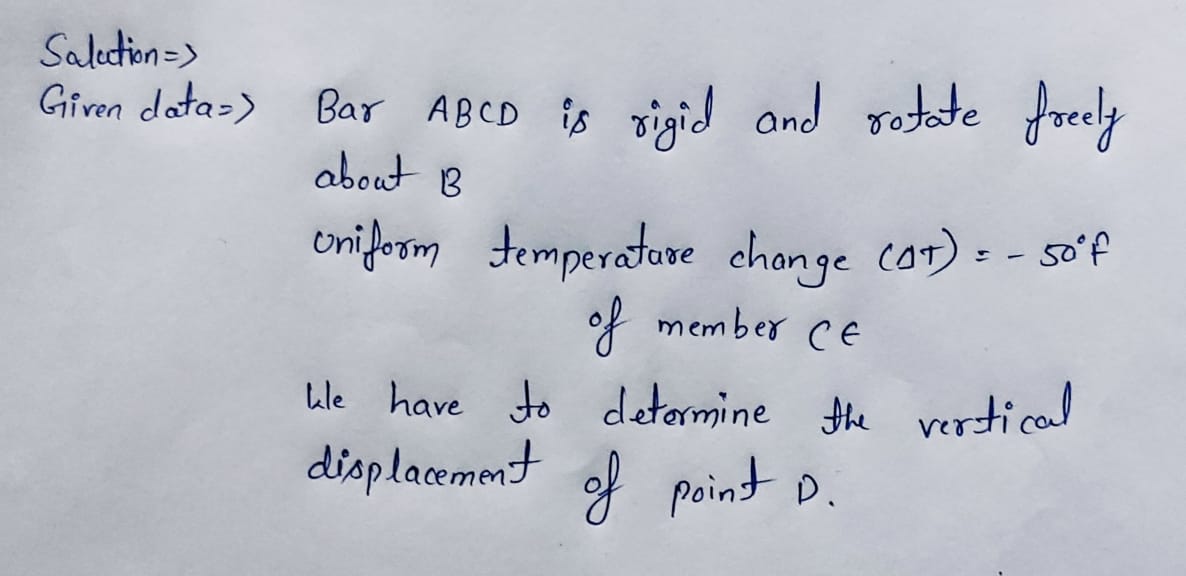 Solution=>
Given data=> Bar ABCD is rigid and rotate freely
about B
uniform temperature change (ΔT) = - 50°f
of member CE
We have to determine the vertical
displacement of point D.